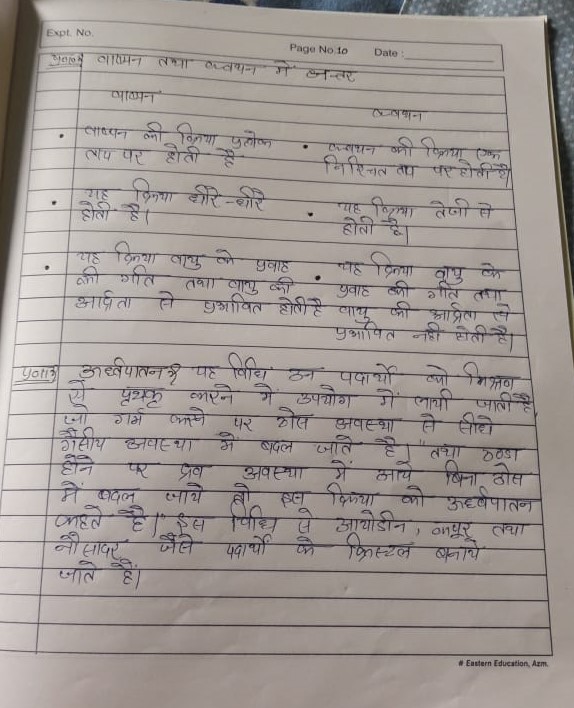 Expt. No.
Page No. 10 Date :
प्र010) वाष्पन तथा क्वथन में अन्तर
वाष्पन
क्वथन
• वाष्पन की क्रिया प्रत्येक • क्वथन की क्रिया एक
ताप पर होती है निश्चित ताप पर होती है।
• यह क्रिया धीरे-धीरे • यह क्रिया तेजी से
होती है। होती है।
• यह क्रिया वायु के प्रवाह • यह क्रिया वायु के
की गति तथा वायु की प्रवाह की गति तथा
आर्द्रता से प्रभावित होती है वायु की आर्द्रता से
प्रभावित नहीं होती है।
प्र011) ऊर्ध्वपातन :- यह विधि उन पदार्थो को मिश्रण
से पृथक् करने में उपयोग में लायी जाती है,
जो गर्म करने पर ठोस अवस्था से सीधे
गैसीय अवस्था में बदल जाते है। "तथा ठण्डा
होने पर द्रव अवस्था में आये बिना ठोस
में बदल जाये तो इस क्रिया को ऊर्ध्वपातन
कहते है।" इस विधि से आयोडीन, कपूर तथा
नौसादर जैसे पदार्थो के क्रिस्टल बनाये
जाते हैं।
# Eastern Education, Azm.